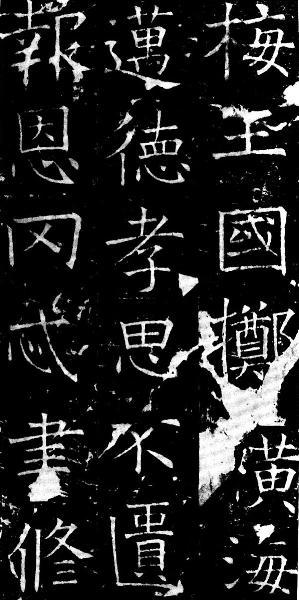 梅玉國擲潢海
邁德孝思不匱
報恩罔忒書修